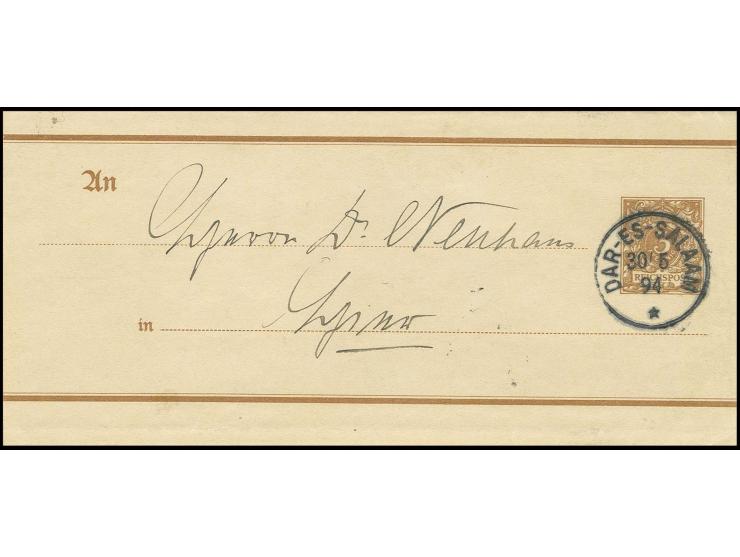 An
Herrn Dr. Neuhaus
in
Hier
3
REICHSPOST
DAR-ES-SALAAM
30/5
94